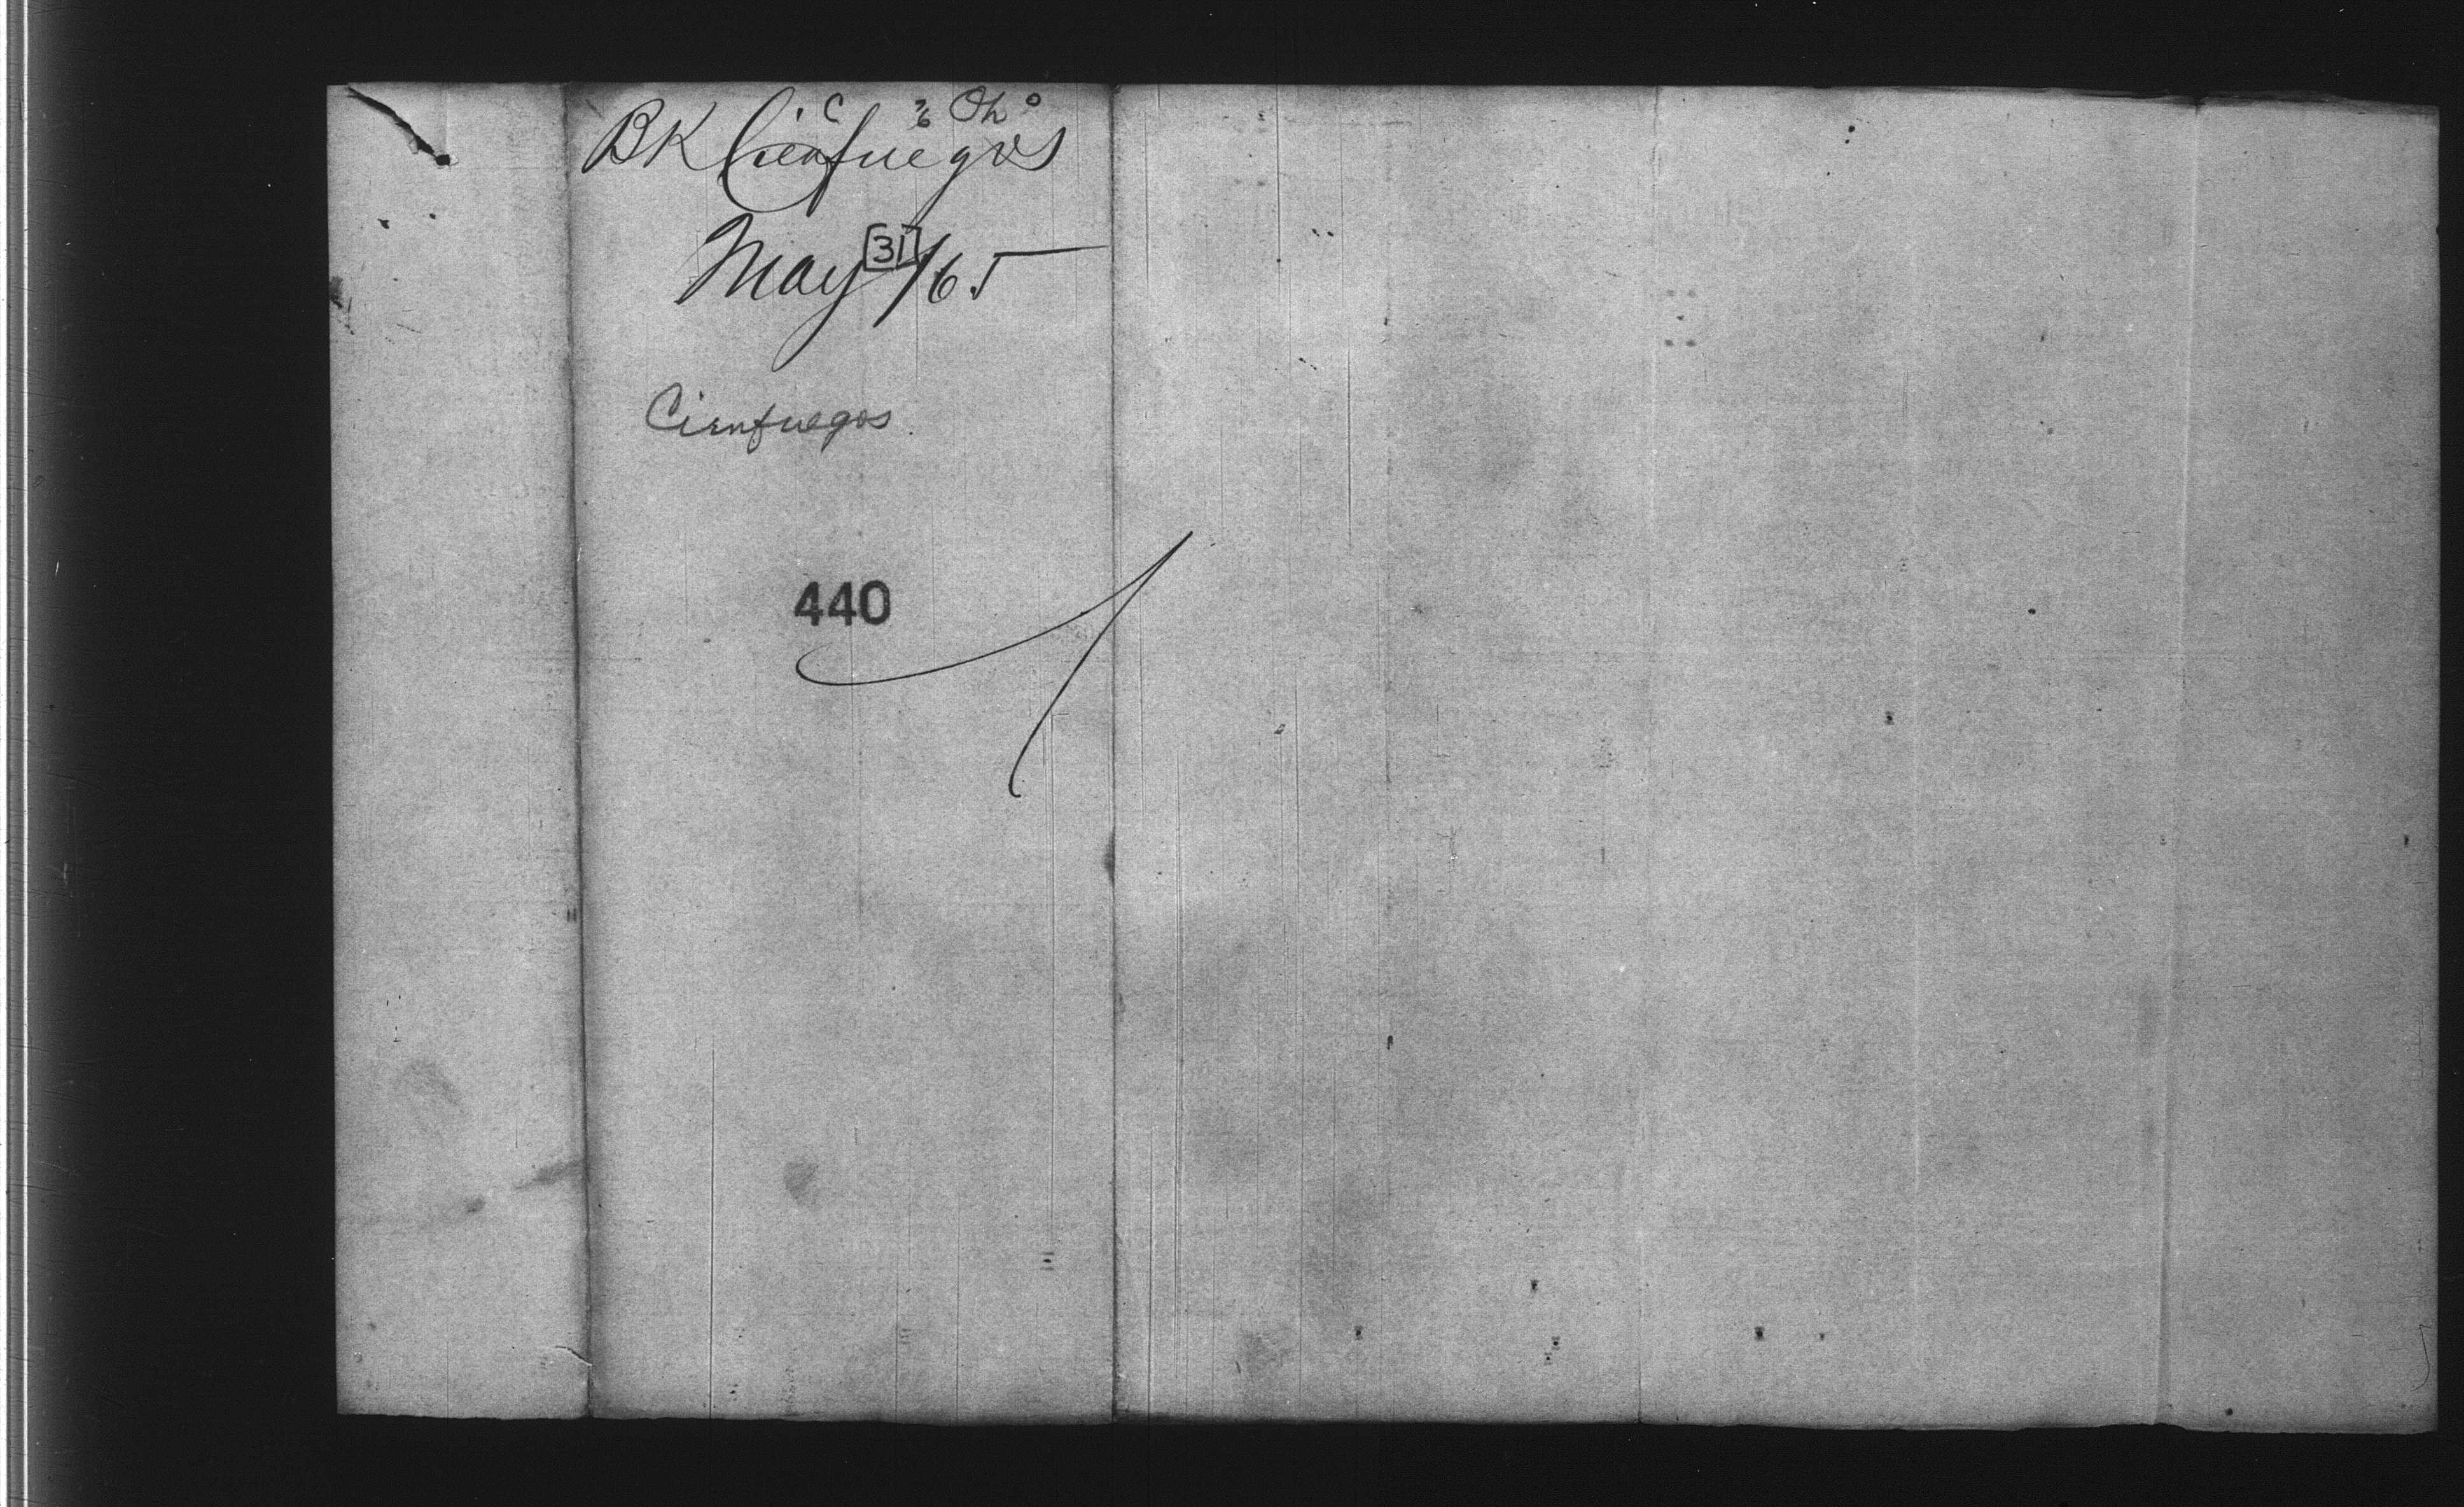 BK Cienfuegos
May [31]/65
Cienfuegos
440